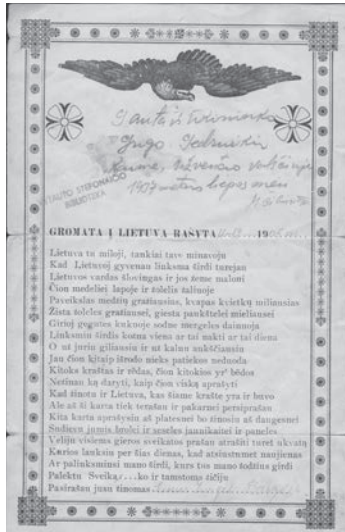 1907 metais liepos mėn
BIBLIOTEKA
GROMATA Į LIETUVA RAŠYTA 19
Lietuva tu miloji, tankiai tave minavoju
Kad Lietuvoj gyvenau linksma širdi turejau
Lietuvos vardas šlovingas ir jos žeme maloni
Čion medeliei lapoje ir žolelis žaliuoje
Paveikslas medžių gražiausias, kvapas kvietkų miliausias
Žista žoleles gražiausei, giesta paukštelei mieliausei
Girioj gegutes kukuoje sodne mergeles dainuoja
Linksmin širdis kožna viena ar tai nakti ar tai diena
O už juriu giliausiu ir už kalnu aukščiausiu
Jau čion kitaip išrodo nieks patiekos neduoda
Kitoks kraštas ir rėdas, čion kitokios yr' bėdos
Nežinau ką daryti, kaip čion viską aprašyti
Kad žinotu ir Lietuva, kas šiame krašte yra ir buvo
Ale aš ši karta tiek terašau ir pakarnei persiprašau
Kita karta aprašysiu aš platesnei bo žinosiu aš daugesnei
Sudievu jumis brolei ir seseles jaunikaitei ir paneles
Veliju visiems gieros sveikatos prašau atrašiti turet akvatą
Kurios lauksiu per šias dienas, kad atsiustumet naujienas
Ar palinksminsi mano širdi, kurs tuos mano žodžius girdi
Palektu Sveik ko ir tamstoms zičiju
Pasirašau jusu žinomas